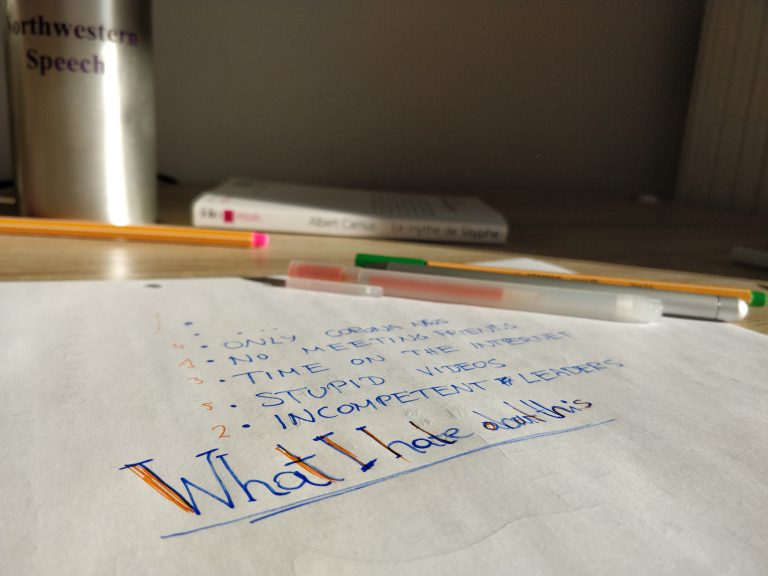 orthwestern
Speech
Albert Camus Le mythe de Sisyphe
• ...
4 • ONLY CORONA NEWS
1 • NO MEETING FRIENDS
3 • TIME ON THE INTERNET
5 • STUPID VIDEOS
2 • INCOMPETENT LEADERS
What I hate about this